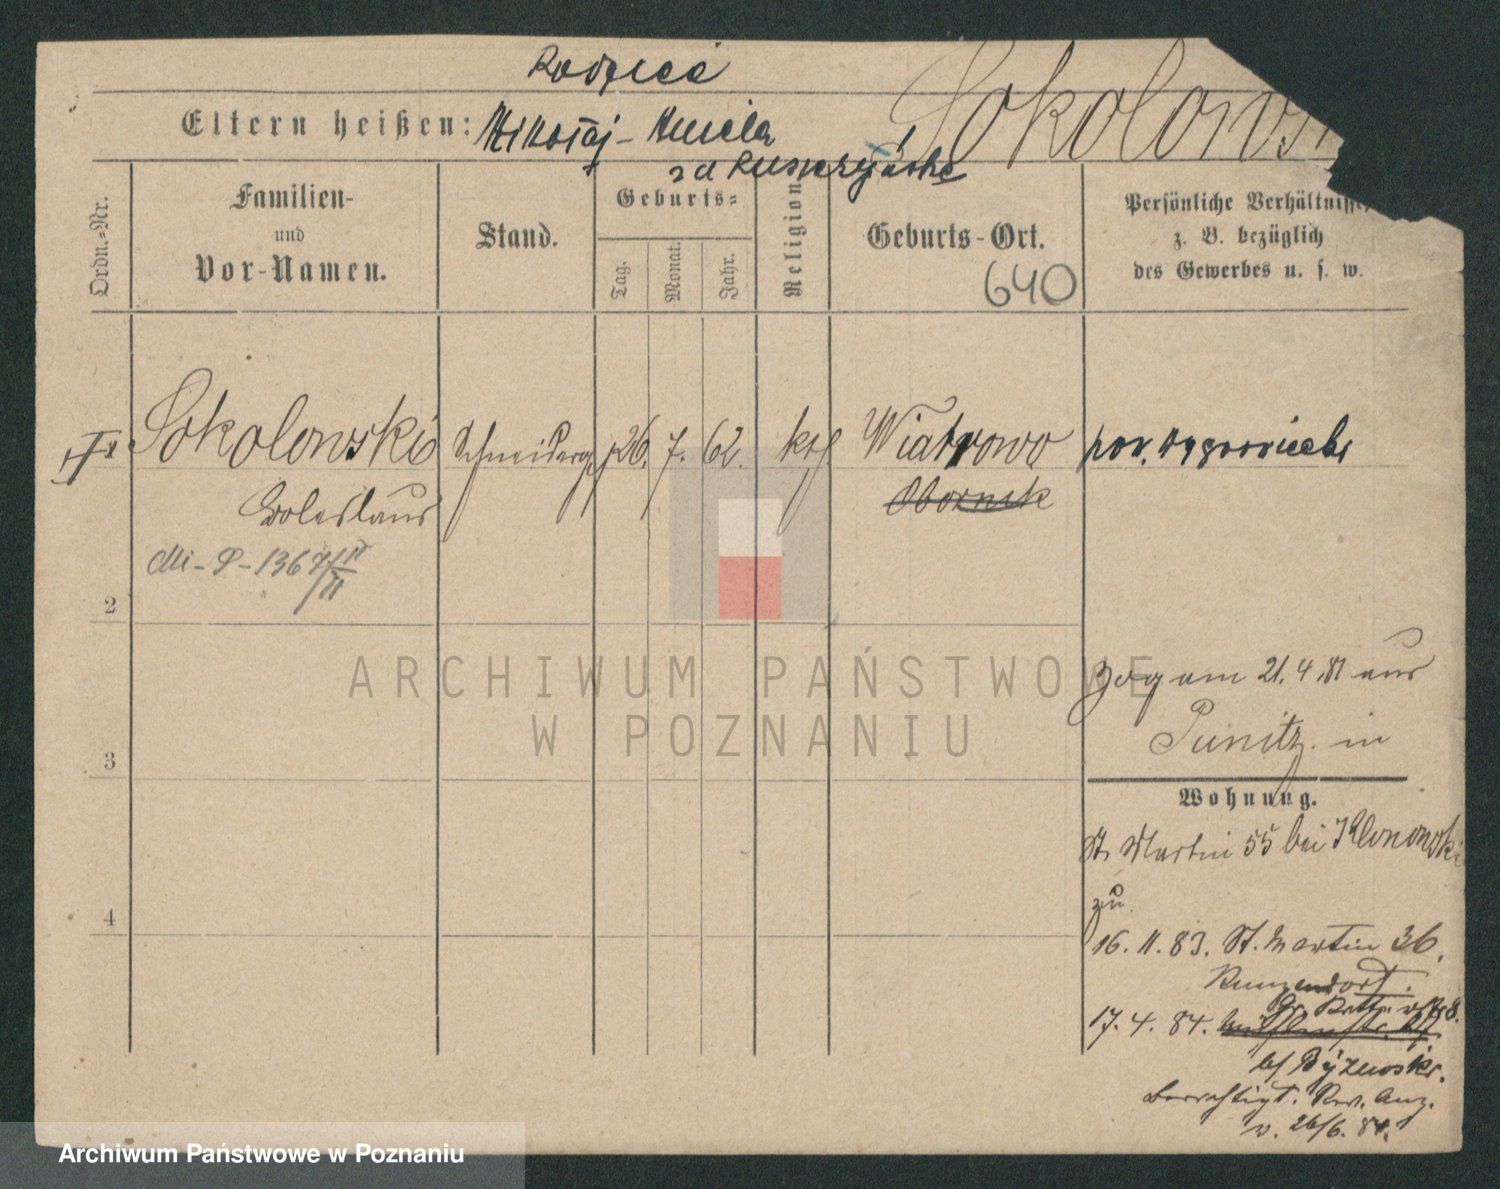 Rodzice
Sokolows
Eltern heißen: Mikołaj - Aniela
zd
Ordn.-Nr.
Familien-
und
Vor-Namen.
Stand.
Geburts-
Tag.
Monat.
Jahr.
Religion
Geburts-Ort.
640
Persönliche Verhältnisse,
z. B. bezüglich
des Gewerbes u. s. w.
Sokolowski Schneiderg 26. 7. 62. kth Wiatrowo pow. Wągrowiecki
Boleslaus Obornik
Mi-P-1367/II
2
Zog am 21.4.81 aus
Punitz in
3
Wohnung.
St. Martin 55 bei Klonowski
zu
4
16. 11. 83. St. Martin 36.
Kunzendorf.
Gr. Ritterstr 8.
17. 4. 84.
bei Byzewski.
Berichtigt. Rev. Anz.
v. 26/6. 84.
ARCHIWUM PAŃSTWOWE
W POZNANIU
Archiwum Państwowe w Poznaniu